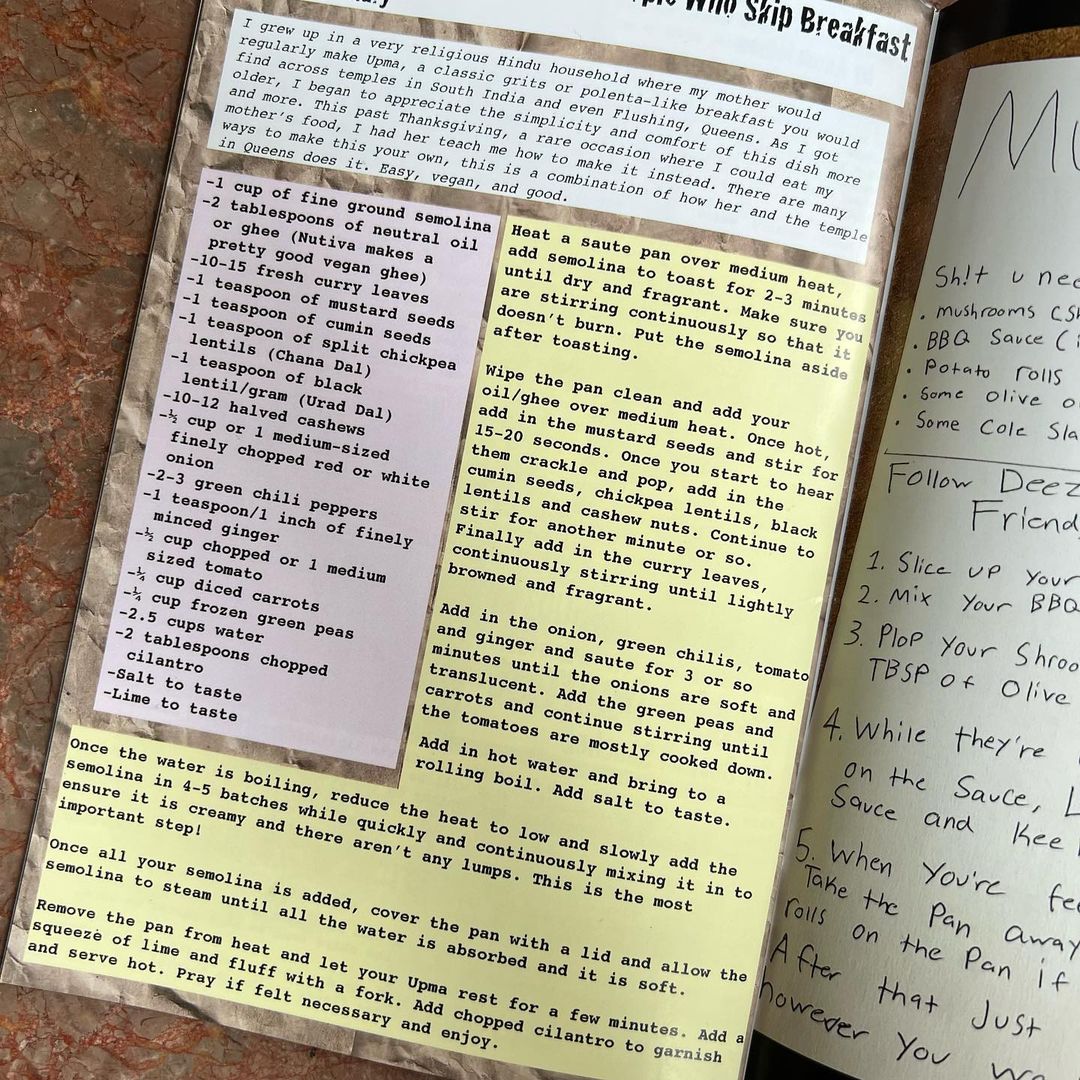 Who Skip Breakfast
I grew up in a very religious Hindu household where my mother would
regularly make Upma, a classic grits or polenta-like breakfast you would
find across temples in South India and even Flushing, Queens. As I got
older, I began to appreciate the simplicity and comfort of this dish more
and more. This past Thanksgiving, a rare occasion where I could eat my
mother's food, I had her teach me how to make it instead. There are many
ways to make this your own, this is a combination of how her and the temple
in Queens does it. Easy, vegan, and good.
-1 cup of fine ground semolina
-2 tablespoons of neutral oil
or ghee (Nutiva makes a
pretty good vegan ghee)
-10-15 fresh curry leaves
-1 teaspoon of mustard seeds
-1 teaspoon of cumin seeds
-1 teaspoon of split chickpea
lentils (Chana Dal)
-1 teaspoon of black
lentil/gram (Urad Dal)
-10-12 halved cashews
-½ cup or 1 medium-sized
finely chopped red or white
onion
-2-3 green chili peppers
-1 teaspoon/1 inch of finely
minced ginger
-½ cup chopped or 1 medium
sized tomato
-¼ cup diced carrots
-¼ cup frozen green peas
-2.5 cups water
-2 tablespoons chopped
cilantro
-Salt to taste
-Lime to taste
Heat a saute pan over medium heat,
add semolina to toast for 2-3 minutes
until dry and fragrant. Make sure you
are stirring continuously so that it
doesn't burn. Put the semolina aside
after toasting.
Wipe the pan clean and add your
oil/ghee over medium heat. Once hot,
add in the mustard seeds and stir for
15-20 seconds. Once you start to hear
them crackle and pop, add in the
cumin seeds, chickpea lentils, black
lentils and cashew nuts. Continue to
stir for another minute or so.
Finally add in the curry leaves,
continuously stirring until lightly
browned and fragrant.
Add in the onion, green chilis, tomato
and ginger and saute for 3 or so
minutes until the onions are soft and
translucent. Add the green peas and
carrots and continue stirring until
the tomatoes are mostly cooked down.
Add in hot water and bring to a
rolling boil. Add salt to taste.
Once the water is boiling, reduce the heat to low and slowly add the
semolina in 4-5 batches while quickly and continuously mixing it in to
ensure it is creamy and there aren't any lumps. This is the most
important step!
Once all your semolina is added, cover the pan with a lid and allow the
semolina to steam until all the water is absorbed and it is soft.
Remove the pan from heat and let your Upma rest for a few minutes. Add a
squeeze of lime and fluff with a fork. Add chopped cilantro to garnish
and serve hot. Pray if felt necessary and enjoy.
Sh!t u
. mushrooms
. BBQ Sauce
. Potato rolls
. Some olive
. Some Cole
Follow Deez
1. Slice up your
2. Mix your BBQ
3. Plop your
TBSP of Olive
4. While they're
on the Sauce,
Sauce and
5. When You're
Take the Pan away
rolls on the Pan if
After that Just
however You